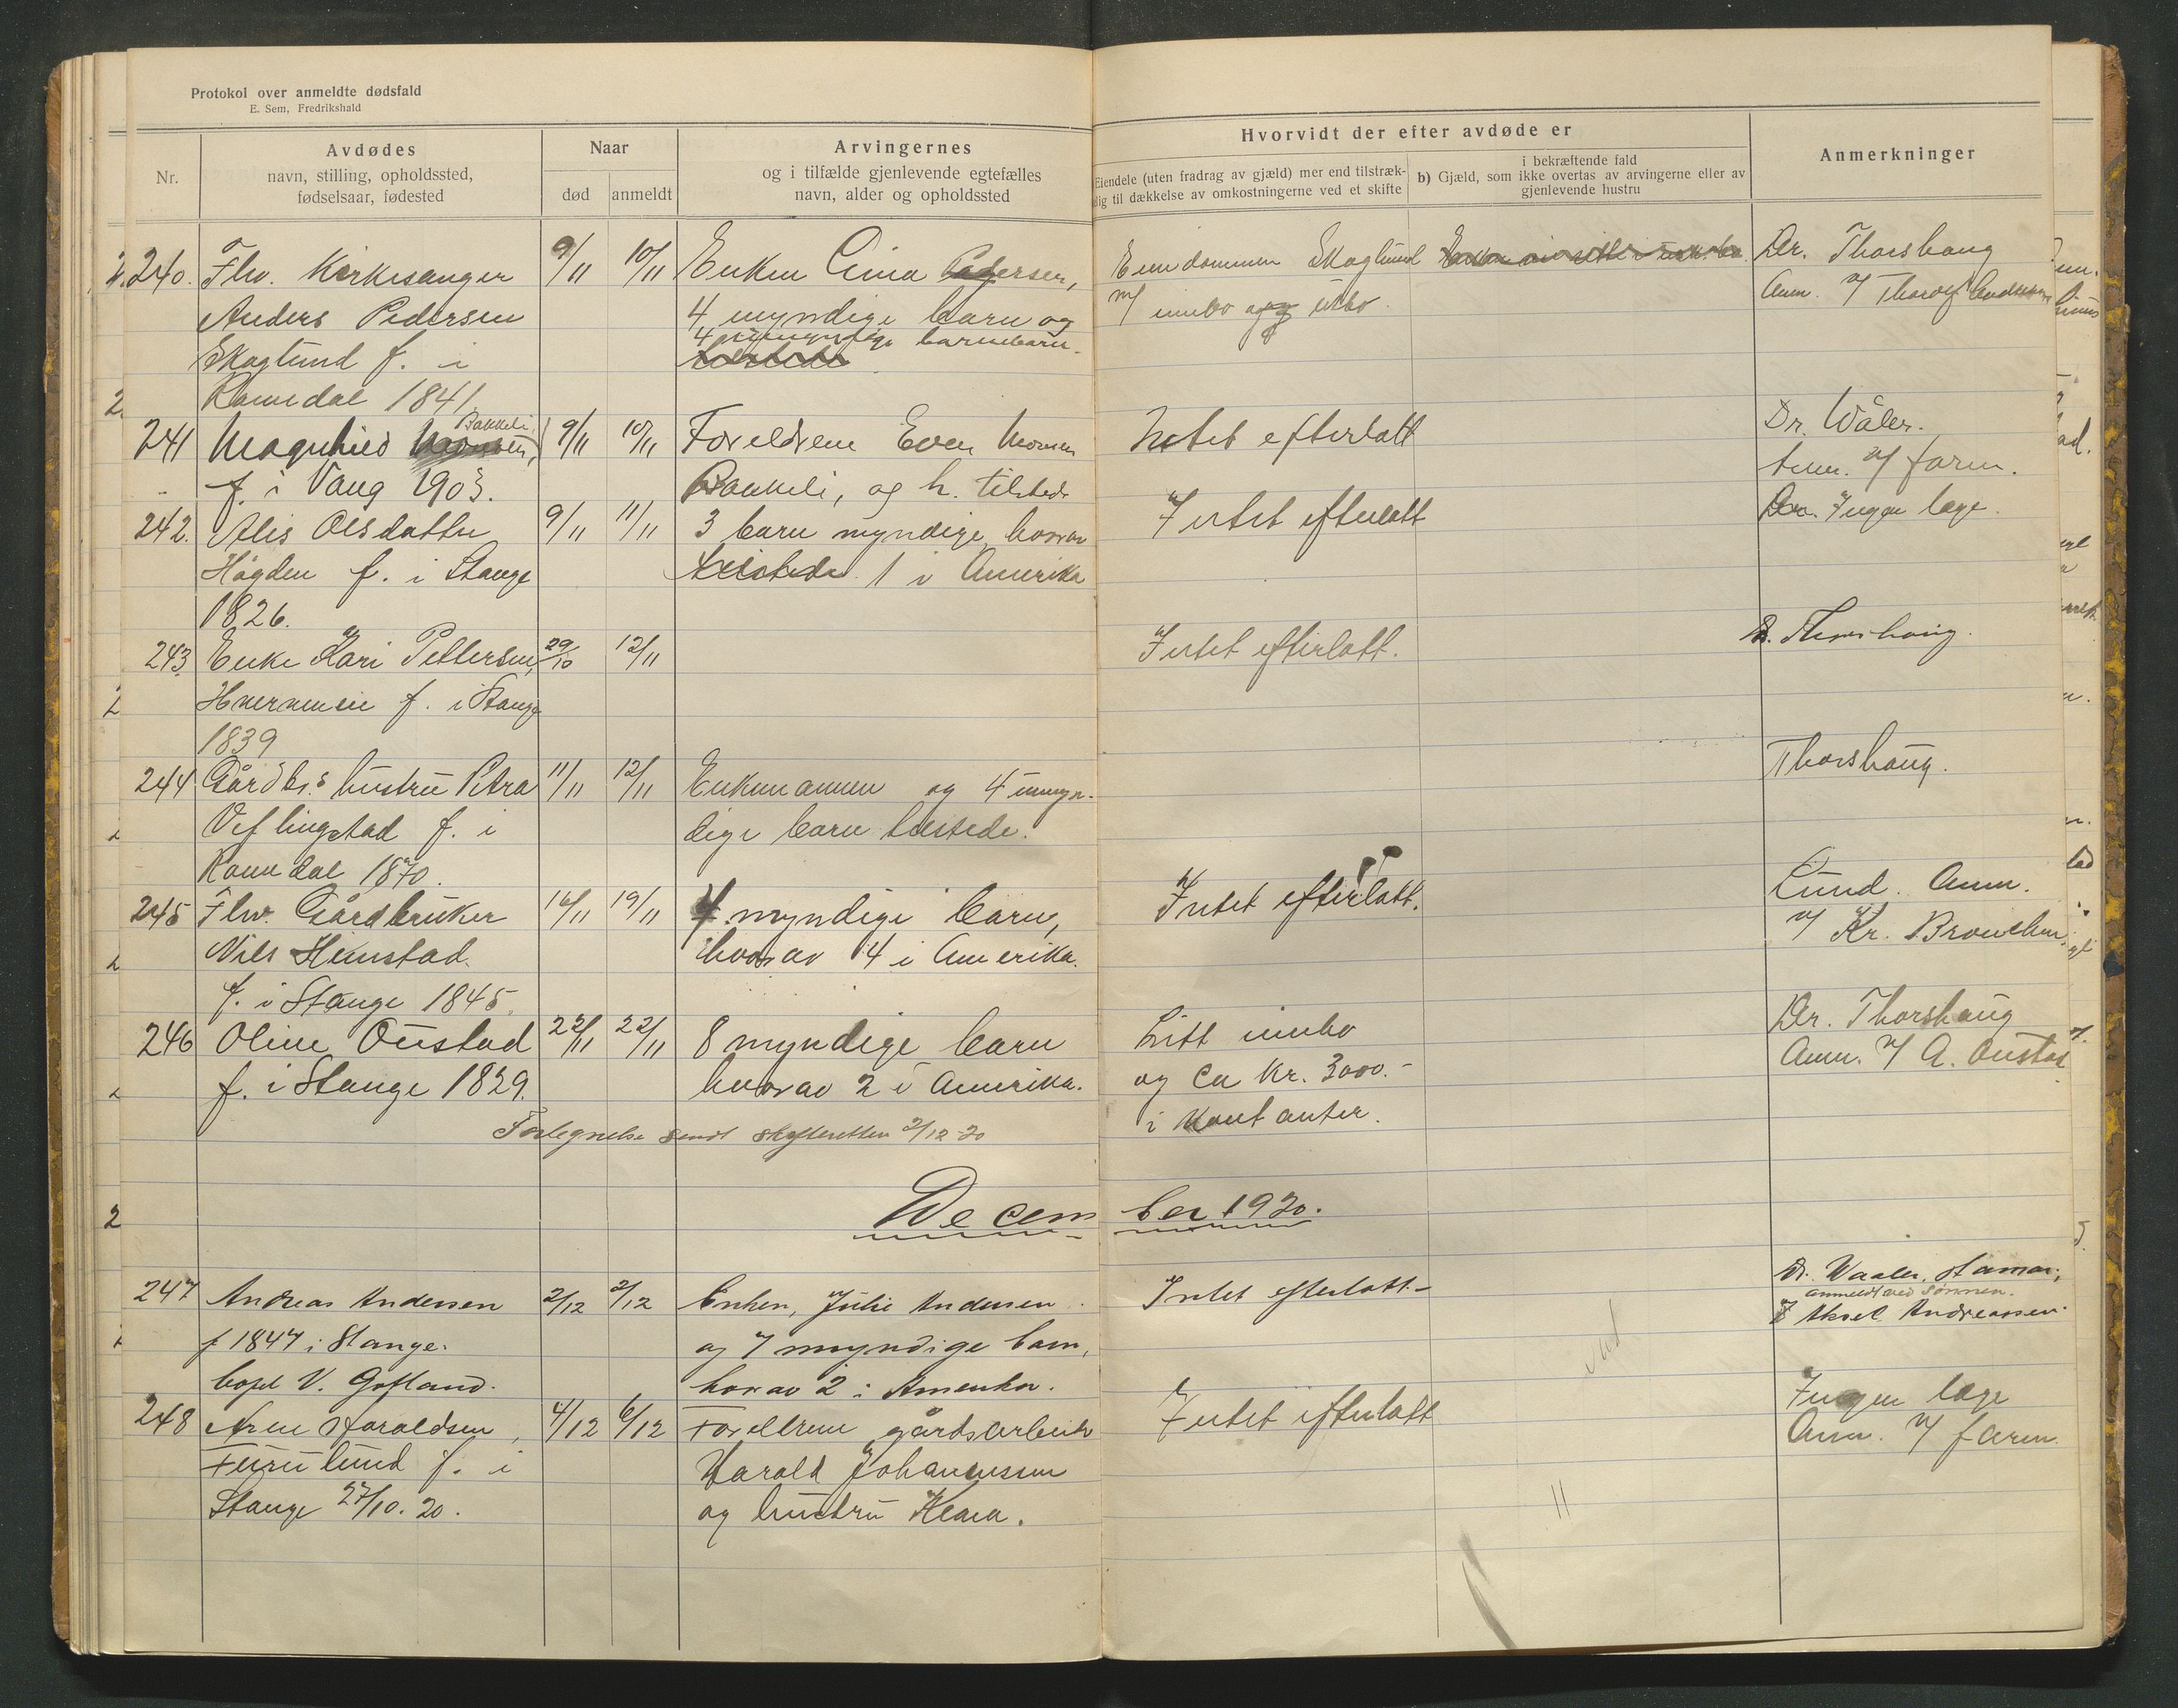 Protokol over anmeldte dødsfald
E. Sem, Fredrikshald
Nr.
Avdødes
navn, stilling, opholdssted,
fødselsaar, fødested
Naar
død
anmeldt
Arvingernes
og i tilfælde gjenlevende egtefælles
navn, alder og opholdssted
Hvorvidt der efter avdøde er
Eiendele (uten fradrag av gjæld) mer end tilstræk-
lig til dækkelse av omkostningerne ved et skifte
i bekræftende fald
b) Gjæld, som ikke overtas av arvingerne eller av
gjenlevende hustru
Anmerkninger
240. Fhv. Kirkesanger
Anders Pedersen
Skoglund f. i
Romedal 1841
9/11 10/11
Enken Lina Pedersen,
4 myndige barn og
4 umyndige barnebarn
Eiendommen Skoglund
m/ innbo og utbo.
Dr. Thorshaug
Anm. v/ Thorolf
241 Magnhild Bakkeli
f. i Vang 1903.
9/11 10/11
Foreldrene Even Monsen
Bakkeli, og h. tilsteds
Intet efterlatt
Dr. Wåler.
Anm. v/ faren.
242. Alis Olsdatter
Høgden f. i Stange
1826.
9/11 11/11
3 barn myndige, horav
tilstede 1 i Amerika
Intet efterlatt
Ingen læge.
243. Enke Kari Pettersen,
f. i Stange
1839
29/10 12/11
Intet efterlatt.
Dr. Thorshaug.
244 Gårdbr.s hustru Petra
Veflingstad f. i
Romedal 1870.
11/11 12/11
Enkemannen og 4 umyn-
dige barn tilstede.
Thorshaug.
245 Fhv. Gårdbruker
Nils Hemstad.
f. i Stange 1845.
16/11 19/11
4 myndige barn,
hvorav 4 i Amerika.
Intet efterlatt.
Lund. Anm.
v/ Kr.
246 Oline Oustad
f. i Stange 1829.
22/11 22/11
8 myndige barn
hvorav 2 i Amerika.
Litt innbo
og ca kr. 3000.-
i kontanter.
Dr. Thorshaug
Anm. v/ A. Oustad
Fortegnelse sendt skifteretten 2/12-20
December 1920.
247 Andreas Andersen
f 1847 i Stange.
bopel V. Gofland.
2/12 2/12
Enken, Julie Andersen
og 7 myndige barn,
horav 2 i Amerika.
Intet efterlatt.-
Dr. Waaler, Hamar,
anmeldt ved sønnen.
Aksel Andreassen.
248 Arne Haraldsen,
Furulund f. i
Stange 27/10. 20.
4/12 6/12
Foreldrene gårdsarbeider
Harald Johannessen
og hustru Klara.
Intet efterlatt
Ingen læge
Anm. v/ faren.